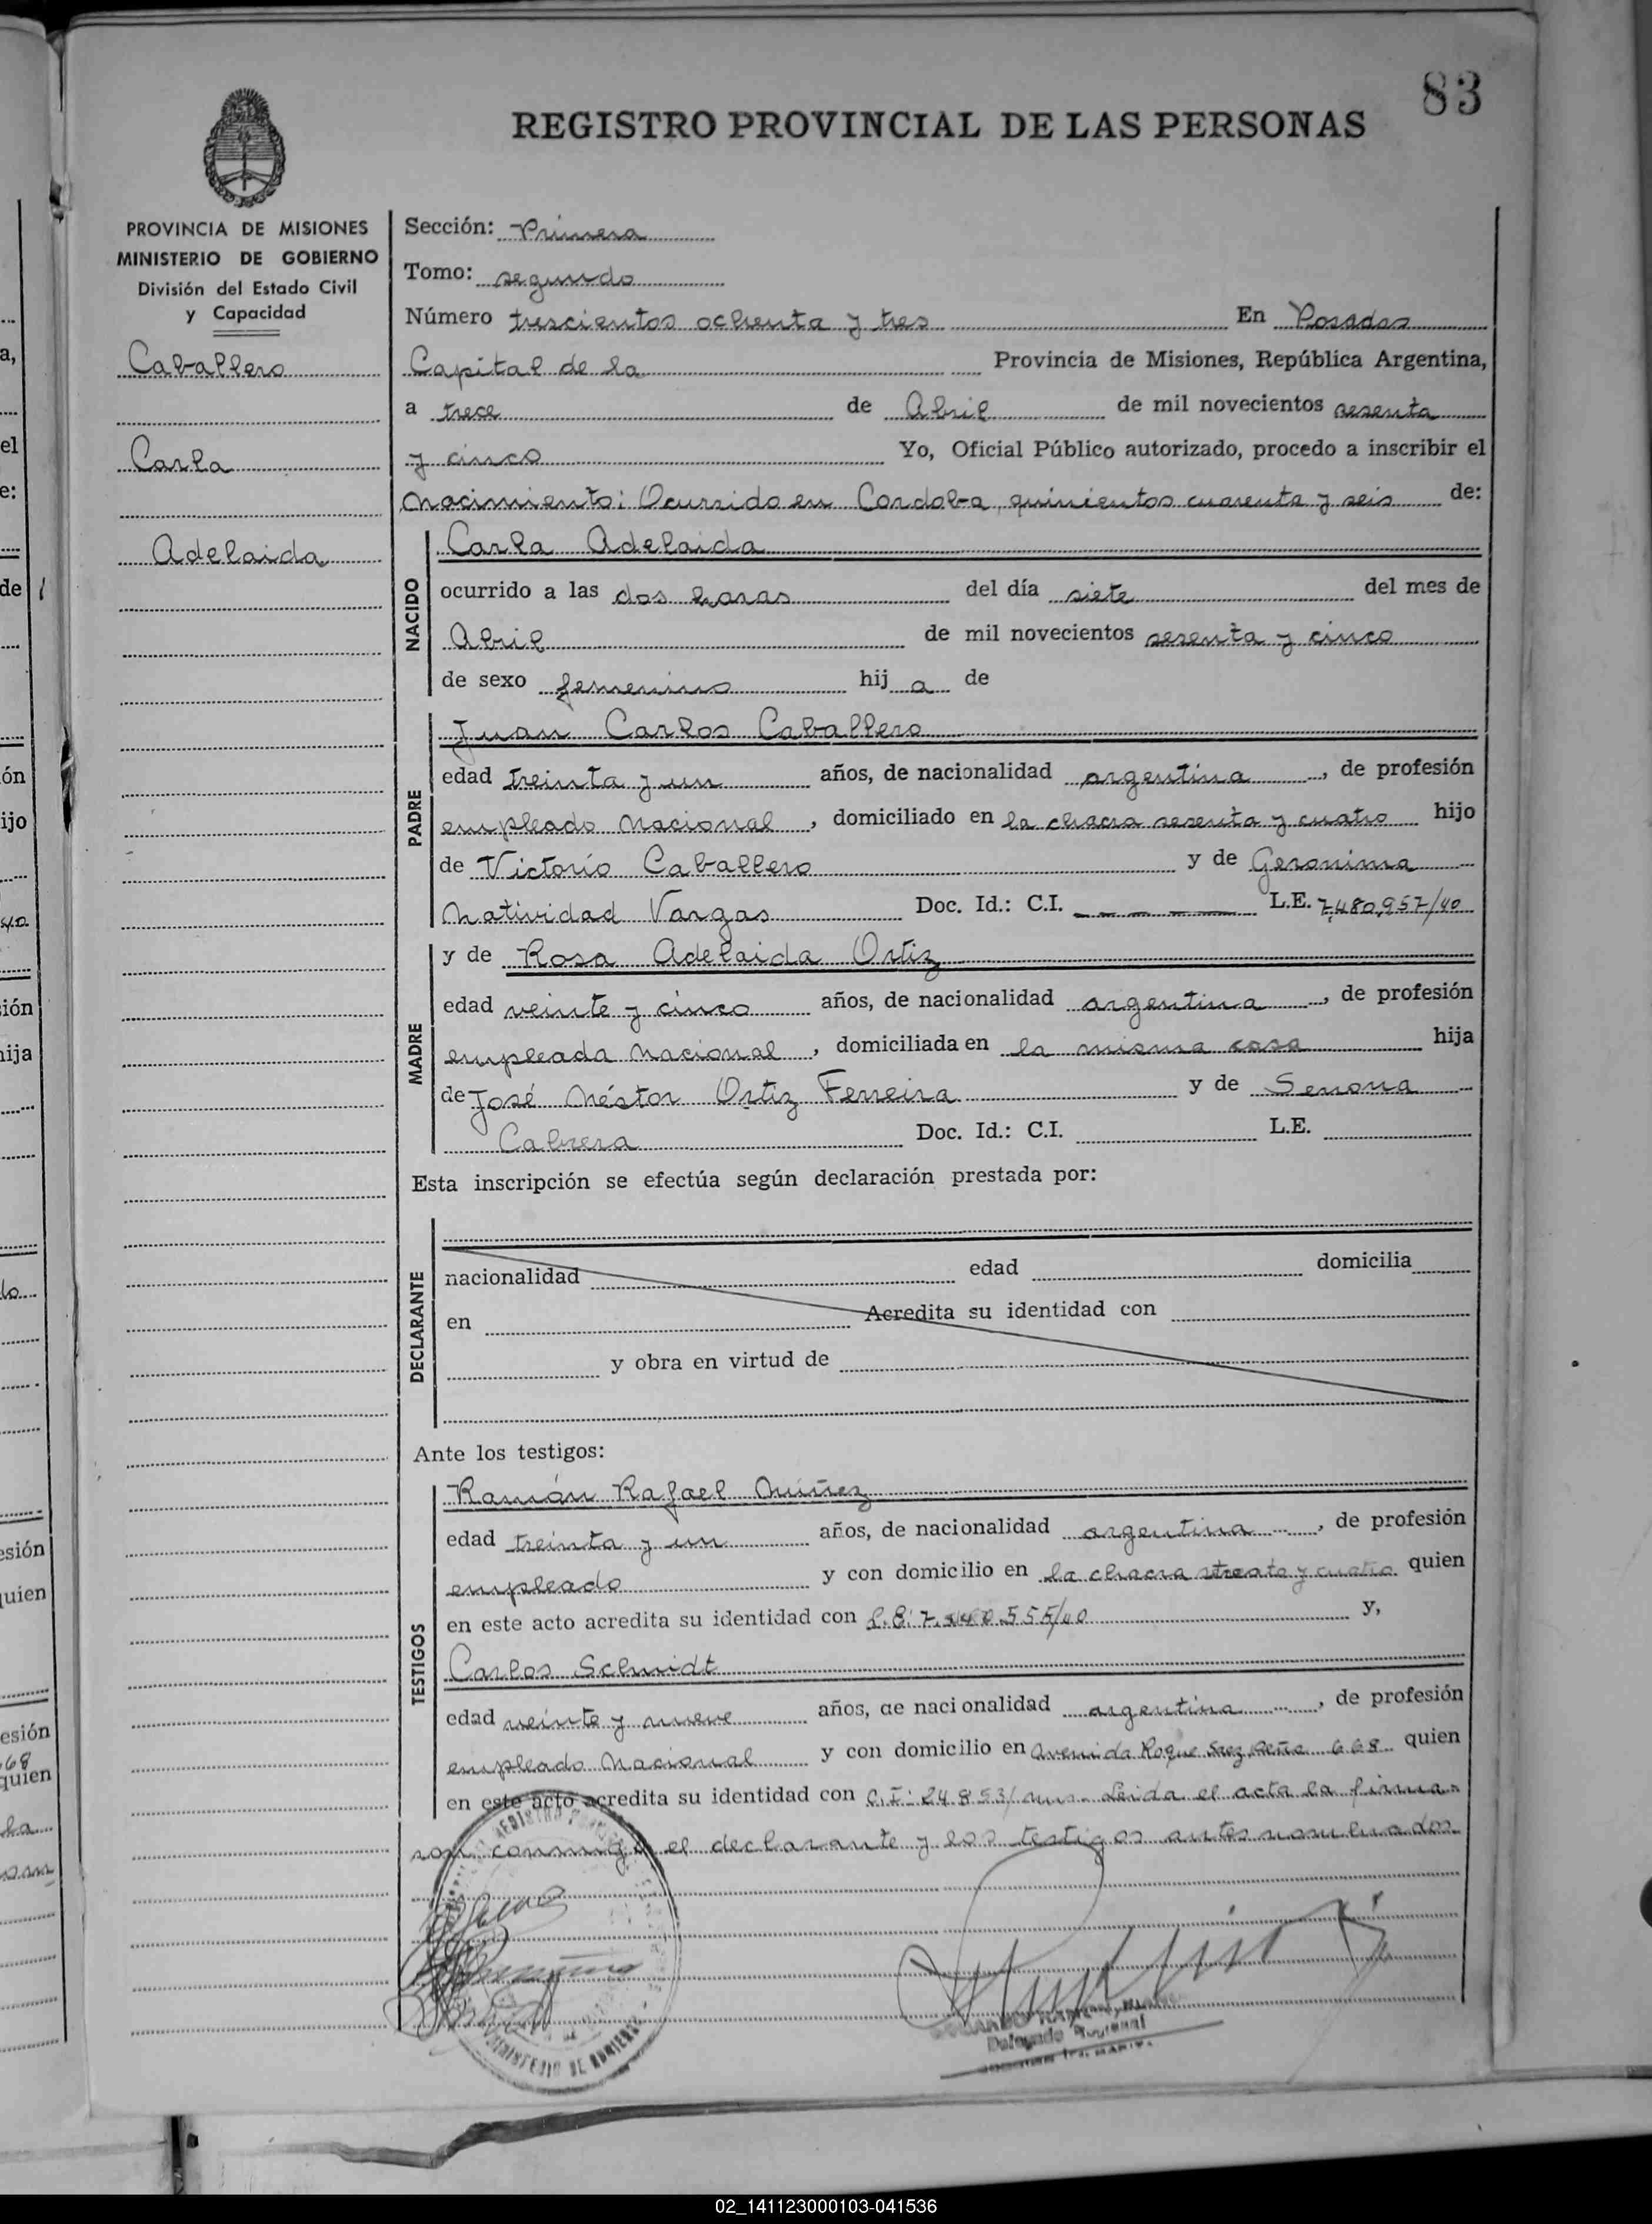 83
REGISTRO PROVINCIAL DE LAS PERSONAS
PROVINCIA DE MISIONES
MINISTERIO DE GOBIERNO
División del Estado Civil
y Capacidad
Caballero
Carla
Adelaida
Sección: Primera
Tomo: segundo
Número trescientos ochenta y tres En Posadas
Capital de la Provincia de Misiones, República Argentina,
a trece de Abril de mil novecientos sesenta
y cinco Yo, Oficial Público autorizado, procedo a inscribir el
Nacimiento: Ocurrido en Cordoba quinientos cuarenta y seis de:
NACIDO
Carla Adelaida
ocurrido a las dos horas del día siete del mes de
Abril de mil novecientos sesenta y cinco
de sexo femenino hij a de
PADRE
Juan Carlos Caballero
edad treinta y un años, de nacionalidad argentina, de profesión
empleado Nacional, domiciliado en la chacra sesenta y cuatro hijo
de Victorio Caballero y de Geronima
Natividad Vargas Doc. Id.: C.I. — — — — L.E. 7.480.957/40
MADRE
y de Rosa Adelaida Ortiz
edad veinte y cinco años, de nacionalidad argentina, de profesión
empleada Nacional, domiciliada en la misma casa hija
de José Néstor Ortiz Ferreira y de Senona
Cabrera Doc. Id.: C.I. L.E.
Esta inscripción se efectúa según declaración prestada por:
DECLARANTE
nacionalidad edad domicilia
en Acredita su identidad con
y obra en virtud de
Ante los testigos:
TESTIGOS
Ramón Rafael Nuñez
edad treinta y un años, de nacionalidad argentina, de profesión
empleado y con domicilio en la chacra y cuatro quien
en este acto acredita su identidad con y,
Carlos Schmidt
edad veinte y nueve años, de nacionalidad argentina, de profesión
empleado Nacional y con domicilio en Avenida Roque Saez Peña 668 quien
en este acto acredita su identidad con C.I: 24.853/ Leida el acta la firma
son conmigo el declarante y los testigos antes nombrados.
MINISTERIO DE GOBIERNO
Delegado Regional
02_141123000103-041536